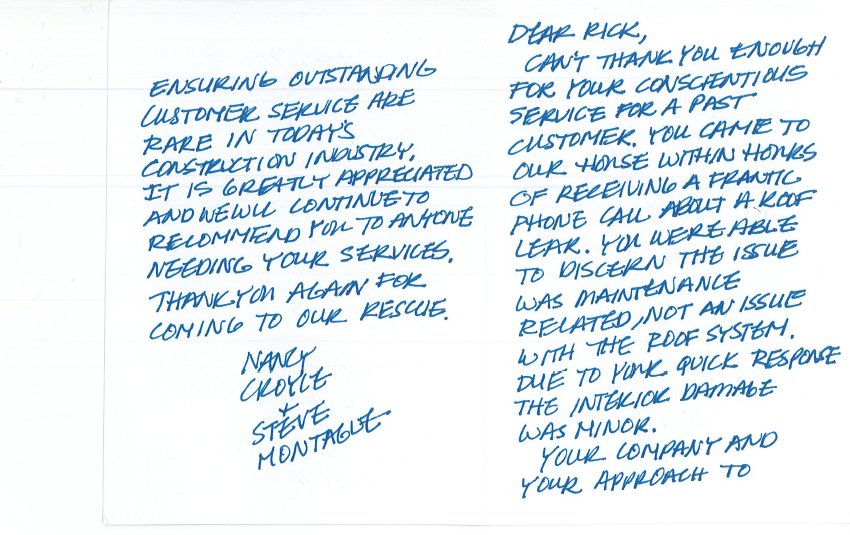 DEAR RICK,
CAN'T THANK YOU ENOUGH
FOR YOUR CONSCIENTIOUS
SERVICE FOR A PAST
CUSTOMER. YOU CAME TO
OUR HOUSE WITHIN HOURS
OF RECEIVING A FRANTIC
PHONE CALL ABOUT A ROOF
LEAK. YOU WERE ABLE
TO DISCERN THE ISSUE
WAS MAINTENANCE
RELATED, NOT AN ISSUE
WITH THE ROOF SYSTEM.
DUE TO YOUR QUICK RESPONSE
THE INTERIOR DAMAGE
WAS MINOR.
YOUR COMPANY AND
YOUR APPROACH TO
ENSURING OUTSTANDING
CUSTOMER SERVICE ARE
RARE IN TODAY'S
CONSTRUCTION INDUSTRY.
IT IS GREATLY APPRECIATED
AND WE WILL CONTINUE TO
RECOMMEND YOU TO ANYONE
NEEDING YOUR SERVICES.
THANK YOU AGAIN FOR
COMING TO OUR RESCUE.
NANCY
CROYLE
+
STEVE
MONTAGUE